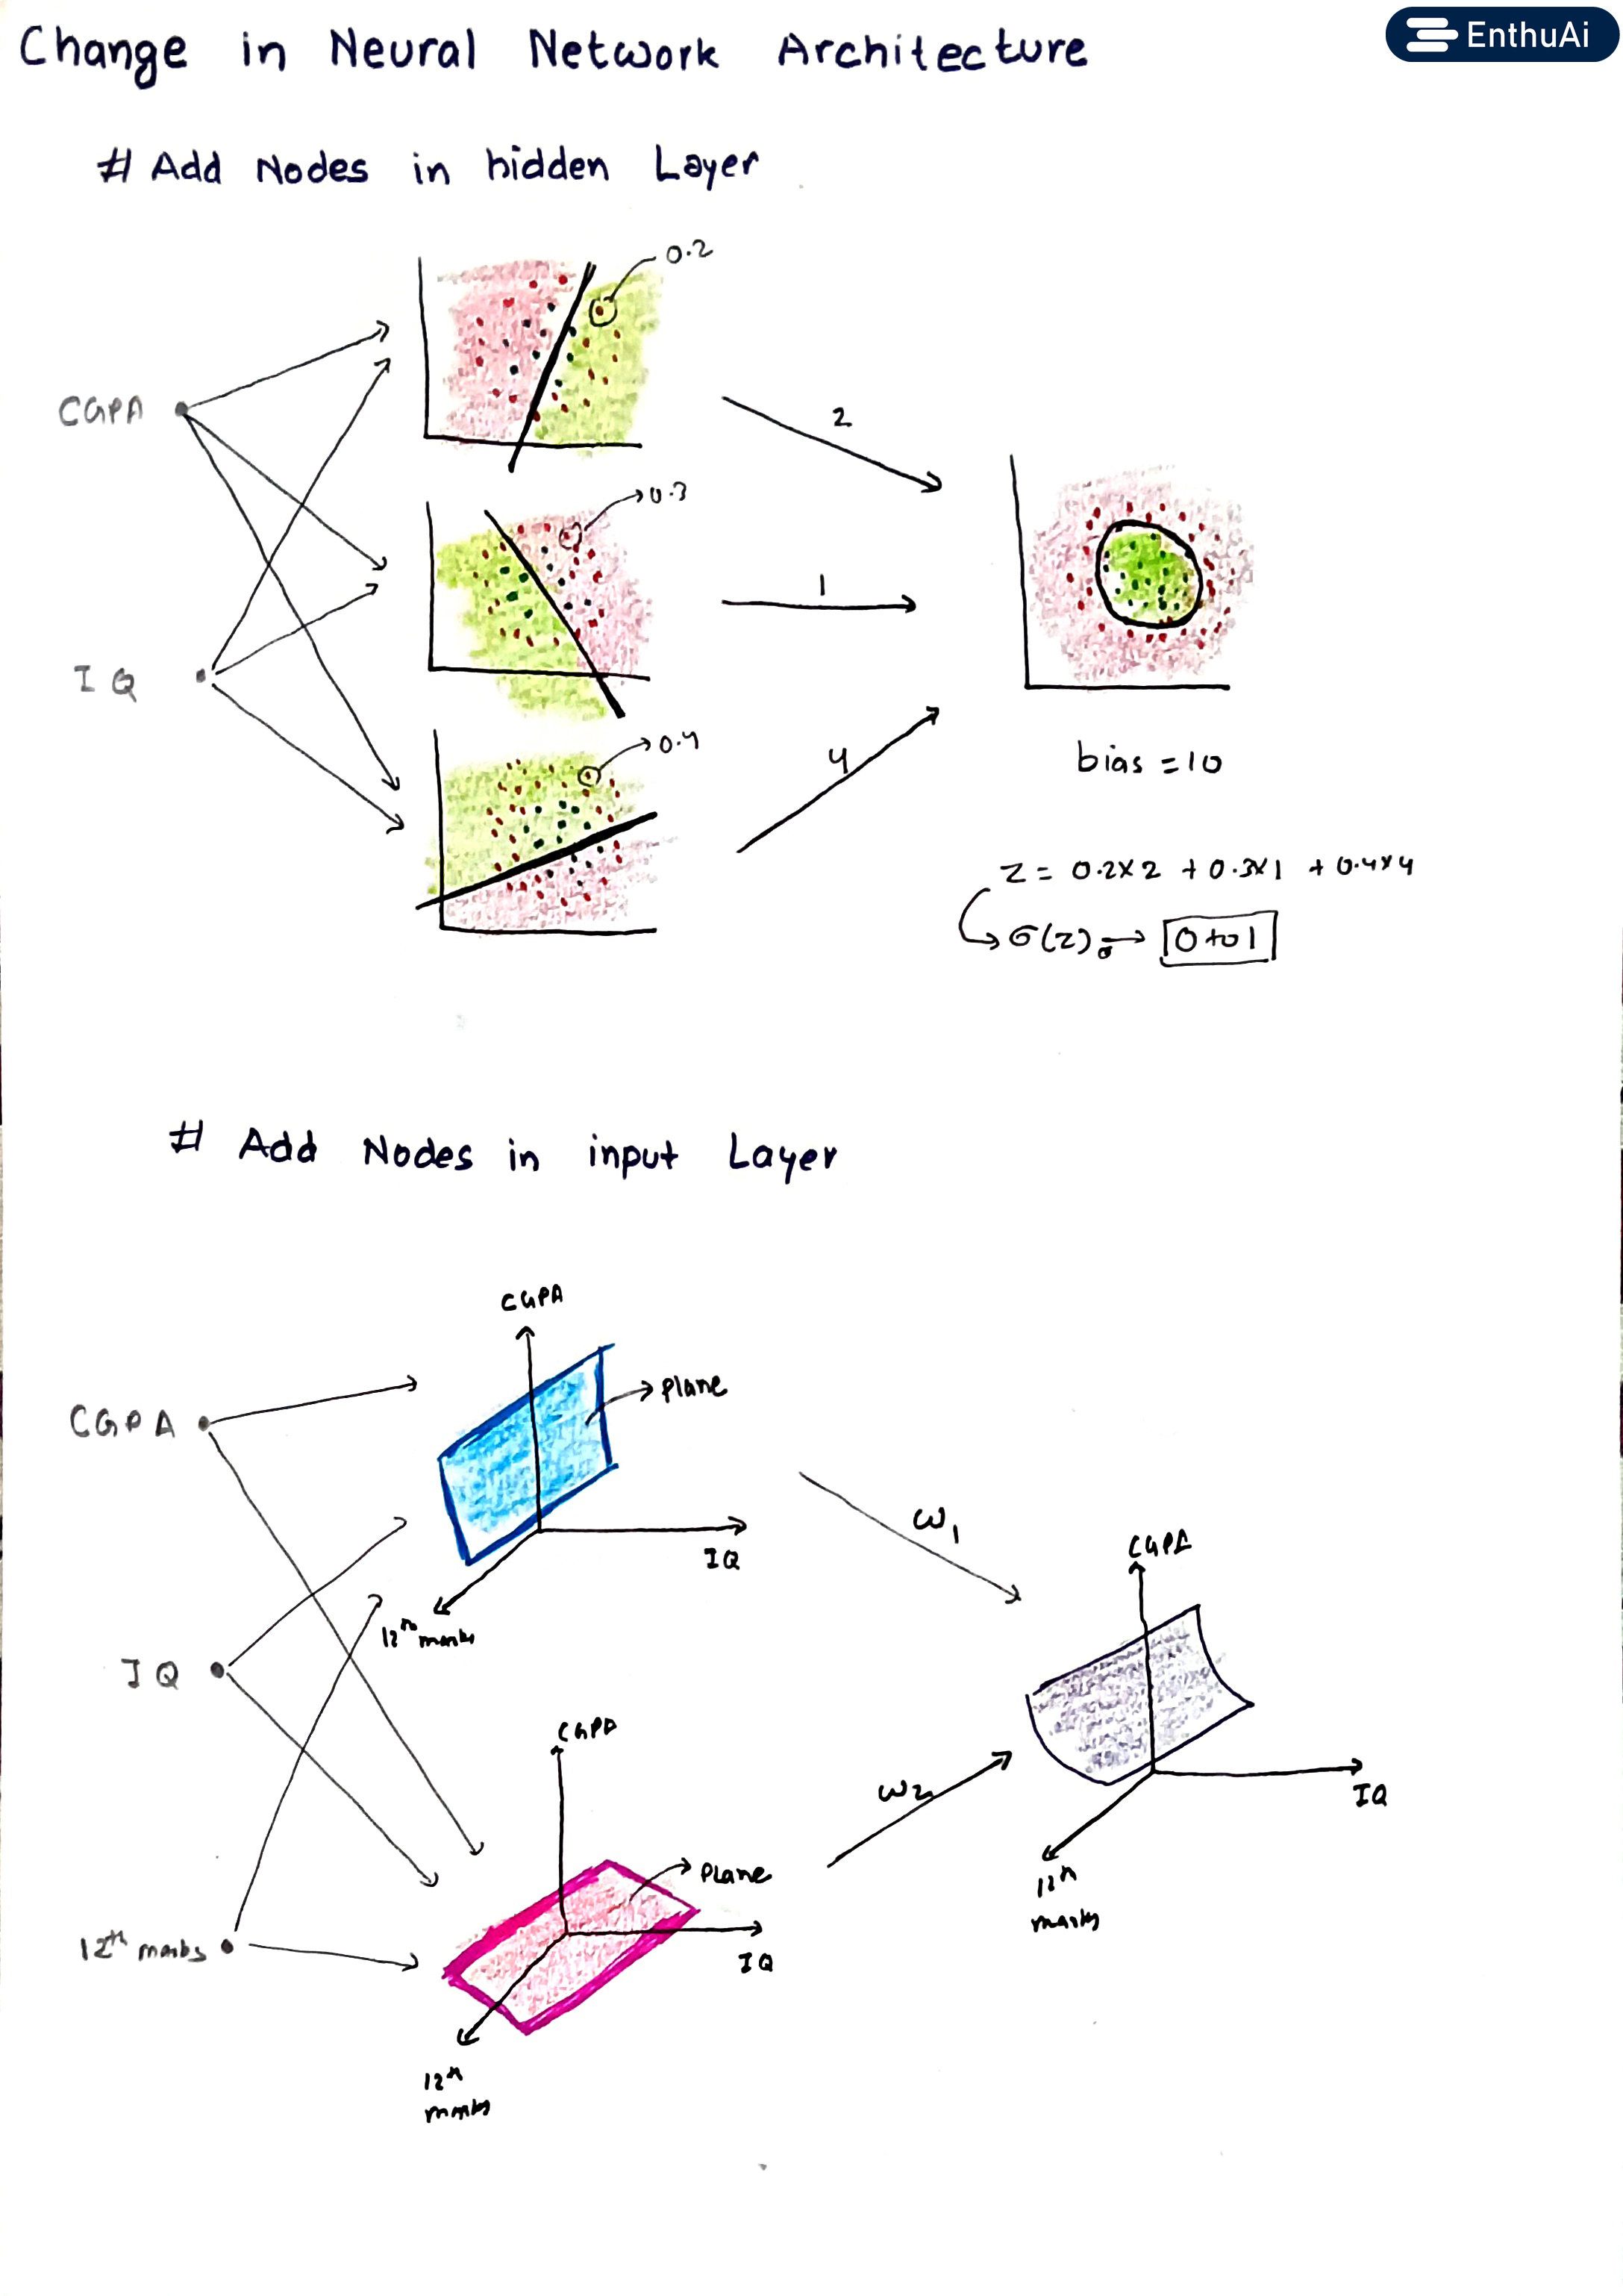 Change in Neural Network Architecture
EnthuAi
# Add Nodes in hidden Layer
0.2
CGPA
2
0.3
1
IQ
0.4
4
bias = 10
Z = 0.2x2 + 0.3x1 + 0.4x4
σ(z) → 0 to 1
# Add Nodes in input Layer
CGPA
Plane
CGPA
IQ
12th marks
w1
CGPA
IQ
CGPA
w2
IQ
Plane
12th marks
IQ
12th
marks
12th
marks